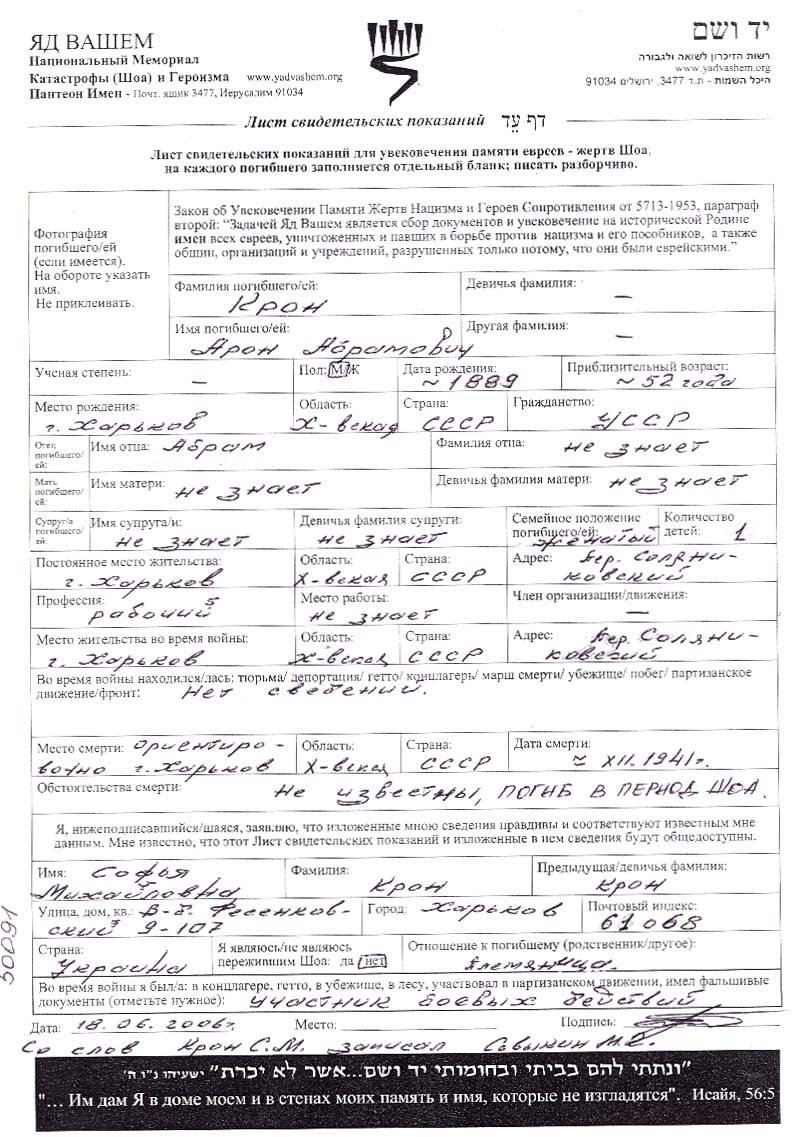 ЯД ВАШЕМ
Национальный Мемориал
Катастрофы (Шоа) и Героизма www.yadvashem.org
Пантеон Имен - Почт. ящик 3477, Иерусалим 91034
יד ושם
רשות הזיכרון לשואה ולגבורה
www.yadvashem.org
היכל השמות - ת.ד 3477, ירושלים 91034
Лист свидетельских показаний דף עֵד
Лист свидетельских показаний для увековечения памяти евреев - жертв Шоа;
на каждого погибшего заполняется отдельный бланк; писать разборчиво.
Фотография
погибшего/ей
(если имеется).
На обороте указать
имя.
Не приклеивать.
Закон об Увековечении Памяти Жертв Нацизма и Героев Сопротивления от 5713-1953, параграф
второй: “Задачей Яд Вашем является сбор документов и увековечение на исторической Родине
имен всех евреев, уничтоженных и павших в борьбе против нацизма и его пособников, а также
общин, организаций и учреждений, разрушенных только потому, что они были еврейскими.”
Фамилия погибшего/сй: Крон
Девичья фамилия: —
Имя погибшего/ей: Арон Абрамович
Другая фамилия: —
Ученая степень: —
Пол: М/Ж
Дата рождения: ~ 1889
Приблизительный возраст: ~ 52 года
Место рождения: г. Харьков
Область: Х-вская
Страна: СССР
Гражданство: УССР
Отец погибшего/ей:
Имя отца: Абрам
Фамилия отца: не знает
Мать погибшего/ей:
Имя матери: не знает
Девичья фамилия матери: не знает
Супруг/а погибшего/ей:
Имя супруга/и: не знает
Девичья фамилия супруги: не знает
Семейное положение погибшего/ей: женатый
Количество детей: 1
Постоянное место жительства: г. Харьков
Область: Х-вская
Страна: СССР
Адрес: пер. Соляни-
ковский
Профессия: рабочий
Место работы: не знает
Член организации/движения: —
Место жительства во время войны: г. Харьков
Область: Х-вская
Страна: СССР
Адрес: пер. Соляни-
ковский
Во время войны находился/лась: тюрьма/ депортация/ гетто/ концлагерь/ марш смерти/ убежище/ побег/ партизанское
движение/фронт: Нет сведений.
Место смерти: ориентиро-
вочно г. Харьков
Область: Х-вская
Страна: СССР
Дата смерти: ≈ XII. 1941г.
Обстоятельства смерти: Не известны, ПОГИБ В ПЕРИОД ШОА.
Я, нижеподписавшийся/шаяся, заявляю, что изложенные мною сведения правдивы и соответствуют известным мне
данным. Мне известно, что этот Лист свидетельских показаний и изложенные в нем сведения будут общедоступны.
Имя: Софья
Михайловна
Фамилия: Крон
Предыдущая/девичья фамилия: Крон
Улица, дом, кв.: В-д. Фесенков-
ский 9-107
Город: Харьков
Почтовый индекс: 61068
Страна: Украина
Я являюсь/не являюсь
пережившим Шоа: да / нет
Отношение к погибшему (родственник/другое): племянница.
Во время войны я был/а: в концлагере, гетто, в убежище, в лесу, участвовал в партизанском движении, имел фальшивые
документы (отметьте нужное): участник боевых действий
Дата: 18.06.2006г.
Место:
Подпись:
Со слов Крон С.М. записал
50091
"ונתתי להם בביתי ובחומותי יד ושם...אשר לא יכרת" ישעיהו נ"ו ה'
"... Им дам Я в доме моем и в стенах моих память и имя, которые не изгладятся". Исайя, 56:5